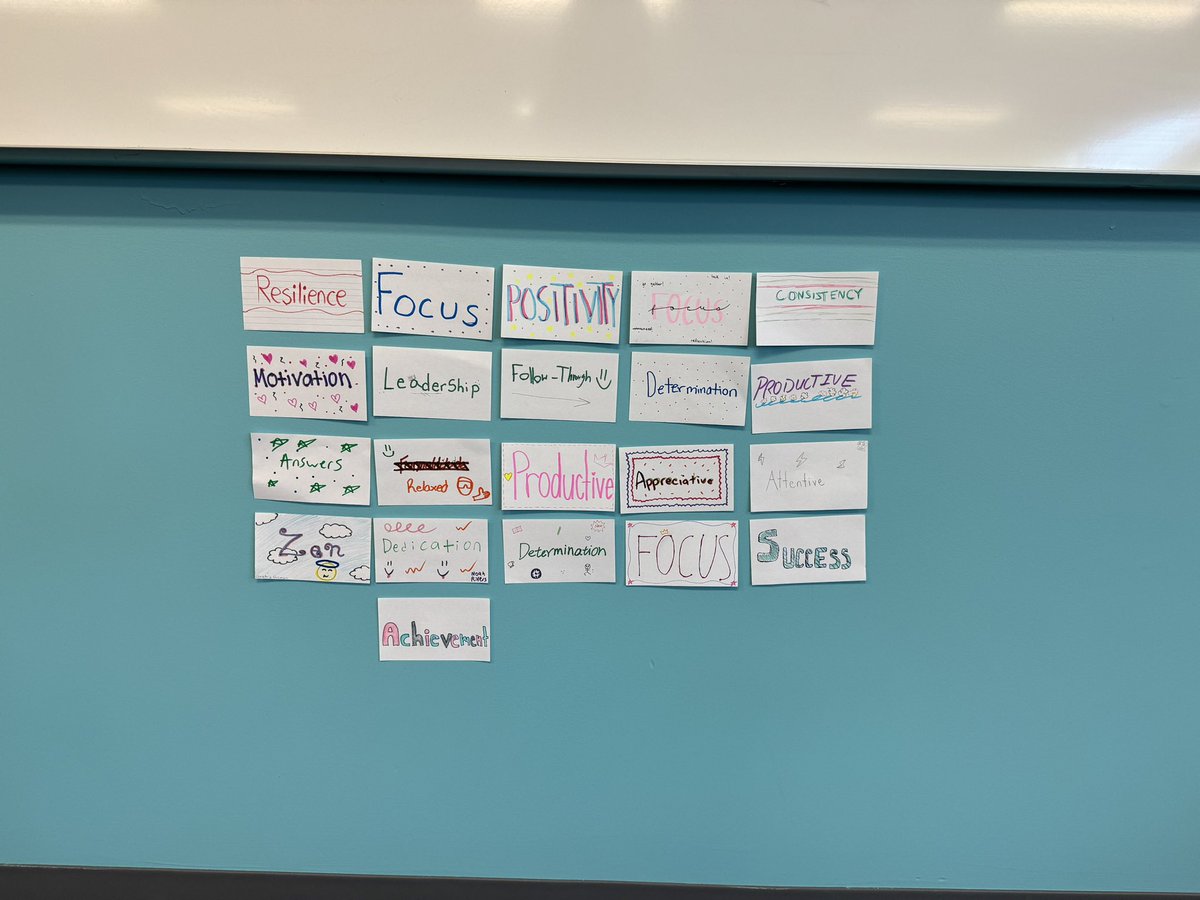 Resilience
Focus
POSITIVITY
FOCUS
focus
CONSISTENCY
Motivation
Leadership
Follow-Through
Determination
PRODUCTIVE
Answers
Relaxed
Productive
Appreciative
Attentive
Zen
Dedication
Determination
FOCUS
SUCCESS
Achievement